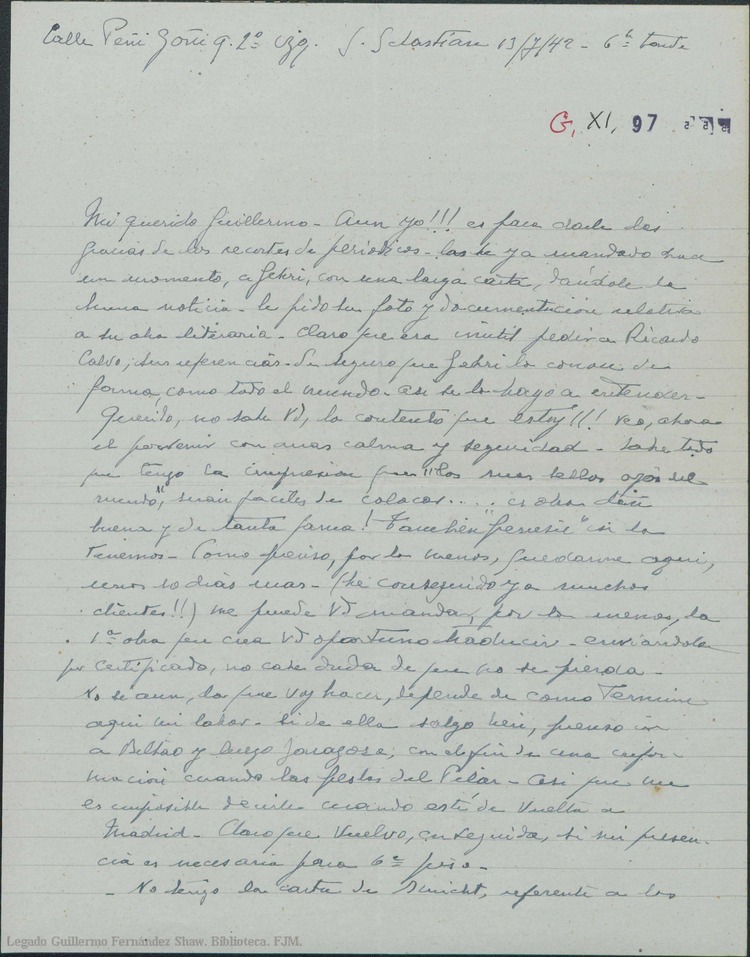 Calle Peñi Goñi 9. 2º izq. S. Sebastian 13/7/42 - 6h tarde
G, XI, 97
Mi querido Guillermo - Aun yo!!! es para darle las
gracias de los recortes de periodicos - los he ya mandado hace
un momento, a Gehri, con una larga carta, dándole la
buena noticia - le pido su foto y documentacion relativa
a su obra literaria - Claro que era inutil pedir a Ricardo
Calvo, sus referencias - De seguro que Gehri lo conoce de
forma, como todo el mundo - asi se lo hago a entender -
Querido, no sabe Vd, lo contento que estoy!!! Veo, ahora
el porvenir con mas calma y seguridad - Sobre todo
que tengo la impresion que "los mas bellos ojos del
mundo", seran faciles de colocar .... es obra tan
buena y de tanta fama! Tambien "frenesie" si la
tenemos - Como pienso, por lo menos, quedarme aqui,
unos 10 dias mas - (he conseguido ya muchos
clientes!!) me puede Vd mandar, por lo menos, la
1ª obra que crea Vd oportuno traducir - enviándola
por certificado, no cabe duda de que no se pierda -
No se aun, lo que voy hacer, depende de como termine
aqui mi labor - Si de ella salgo bien, pienso ir
a Bilbao y luego Zaragoza; con el fin de una
macion cuando las fiestas del Pilar - Asi que me
es imposible decirle cuando esté de vuelta a
Madrid - Claro que vuelvo, en seguida, si mi presen-
cia es necesaria para
- No tengo la carta de, referente a los
Legado Guillermo Fernández Shaw. Biblioteca. FJM.